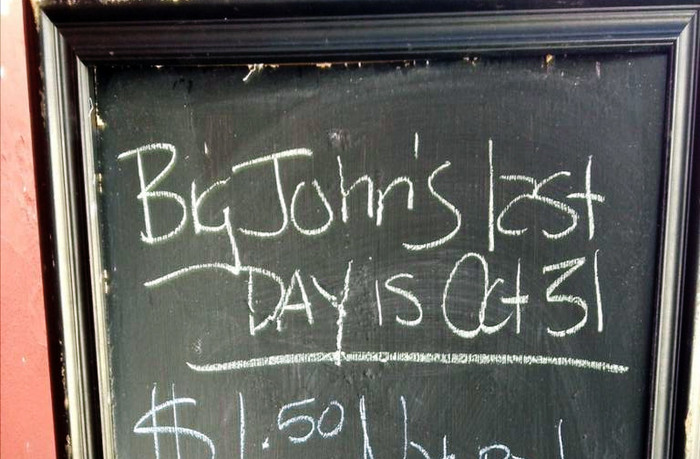 Big John's last
DAY is Oct 31
$1.50